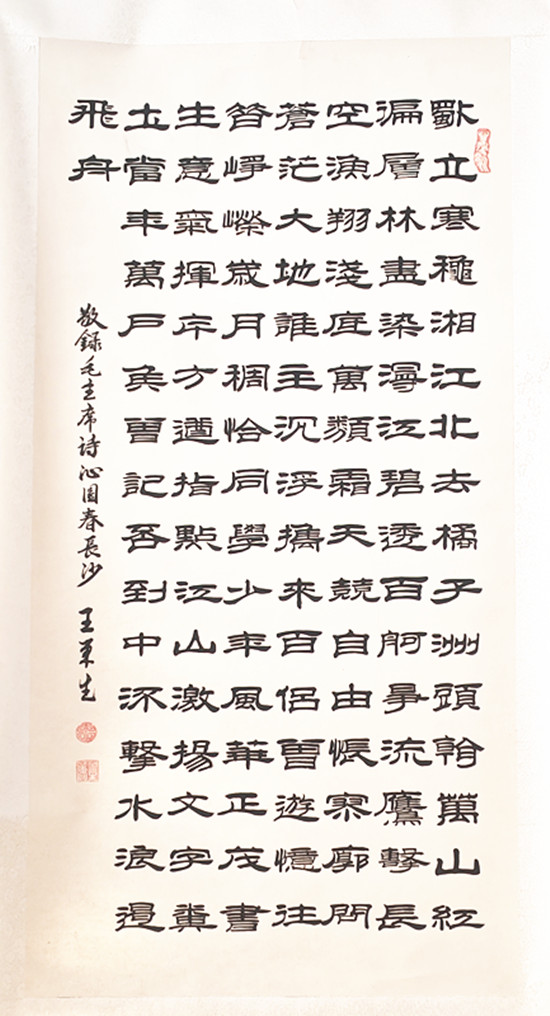 獨立寒穐湘江北去橘子洲頭看萬山紅
徧層林盡染漫江碧透百舸爭流鷹擊長
空漁翔淺底萬類霜天競自由悵寥廓問
蒼茫大地誰主沉浮攜來百侶曾遊憶往
昔崢嶸歲月稠恰同學少年風華正茂書
生意氣揮斥方遒指點江山激揚文字糞
土當年萬戶侯曾記否到中流擊水浪遏
飛舟
敬録毛主席詩沁园春長沙 王